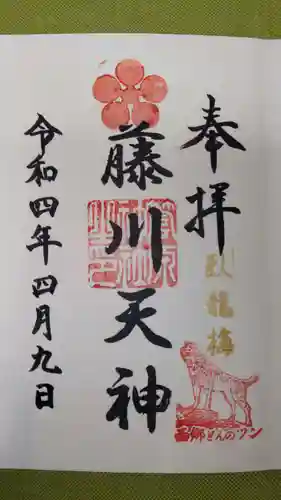 奉拝
臥龍梅
西郷どんのツン
藤川天神
令和四年四月九日